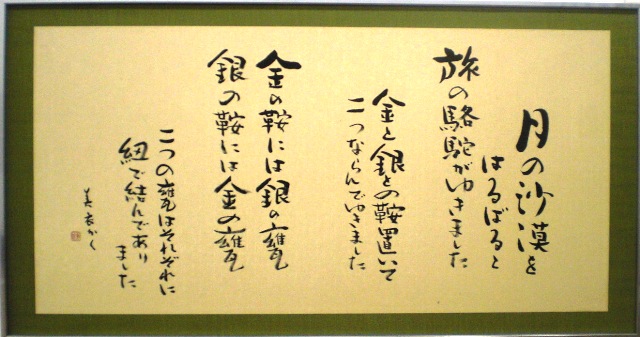 月の沙漠を
はるばると
旅の駱駝がゆきました
金と銀との鞍置いて
二つならんでゆきました
金の鞍には銀の甕
銀の鞍には金の甕
二つの甕はそれぞれに
紐で結んであり
ました
美衣かく